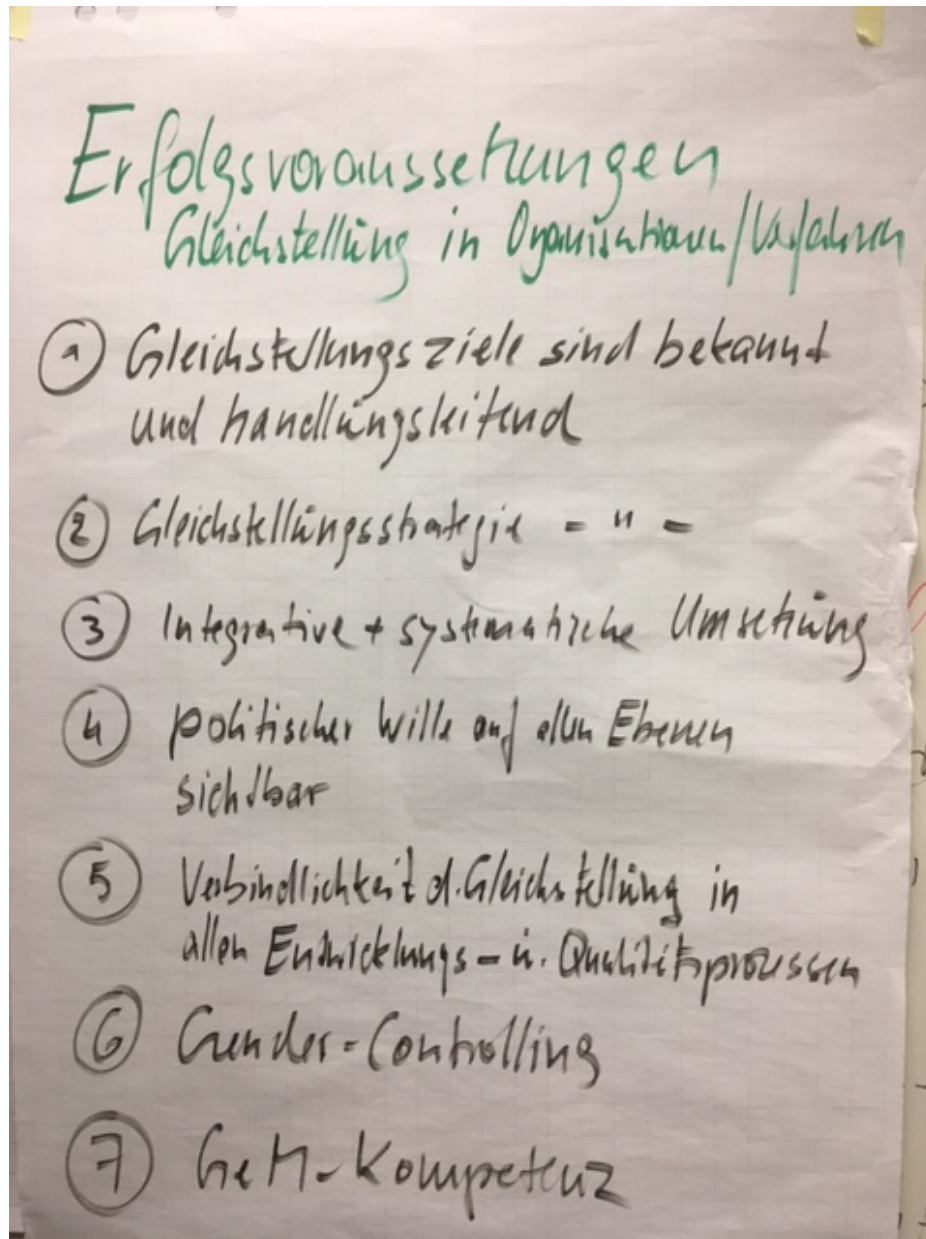 Erfolgsvoraussetzungen
Gleichstellung in Organisationen/Verfahren
1 Gleichstellungsziele sind bekannt
und handlungsleitend
2 Gleichstellungsstrategie - " -
3 Integrative + systematische Umsetzung
4 politischer Wille auf allen Ebenen
sichtbar
5 Verbindlichkeit d. Gleichstellung in
allen Entwicklungs- u. Qualitätsprozessen
6 Gender-Controlling
7 GeM-Kompetenz